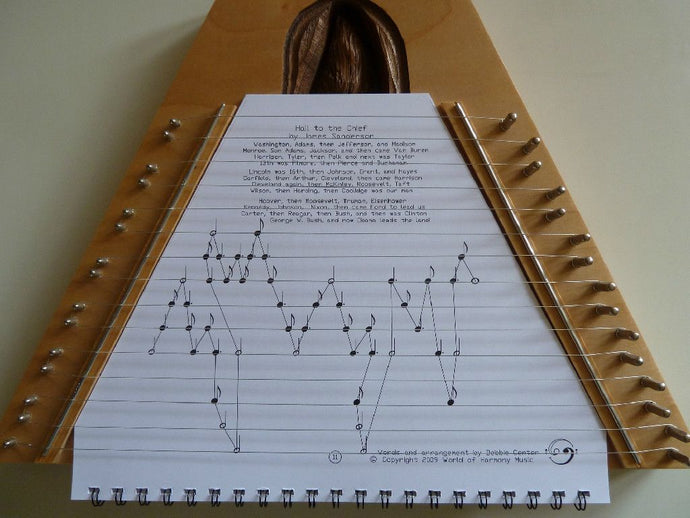 Hail to the Chief
by James Sanderson
Washington, Adams, then Jefferson, and Madison
Monroe, Son Adams, Jackson, and then came Van Buren
Harrison, Tyler, then Polk and next was Taylor
13th was Fillmore, then Pierce and Buchanan
Lincoln was 16th, then Johnson, Grant, and Hayes
Garfield, then Arthur, Cleveland, then came Harrison
Cleveland again, then McKinley, Roosevelt, Taft
Wilson, then Harding, then Coolidge was our man
Hoover, then Roosevelt, Truman, Eisenhower
Kennedy, Johnson, Nixon, then came Ford to lead us
Carter, then Reagan, then Bush, and then was Clinton
George W. Bush, and now Obama leads the land
11
Words and arrangement by Debbie Center
© Copyright 2009 World of Harmony Music